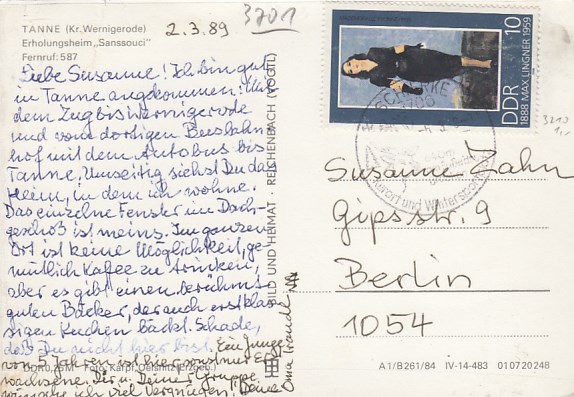 TANNE (Kr. Wernigerode)
Erholungsheim „Sanssouci“
Fernruf: 587
2.3.89
3701
Liebe Susanne! Ich bin gut
in Tanne angekommen: Mit
dem Zug bis Wernigerode
und vom dortigen Busbahn
hof mit dem Autobus bis
Tanne. Umseitig siehst Du das
Heim, in dem ich wohne.
Das einzelne Fenster im Dach-
geschoß ist meins. Im ganzen
Ort ist keine Möglichkeit, ge-
mütlich Kaffee zu trinken,
aber es gibt einen berühmt
guten Bäcker, der auch erstklas
sigen Kuchen bäckt. Schade,
daß Du nicht hier bist. Ein Junge
von 5 Jahren ist hier, sonst nur Er
wachsene. Dir u. Deiner Gruppe
wünsche ich viel Vergnügen! Deine
Oma Traudel
BILD UND HEIMAT · REICHENBACH (VOGTL)
Foto: Karpf, Oelsnitz (Erzgeb.)
10
DDR
1888 MAX LINGNER 1959
Kurort und Wintersport
3210
1,-
Susanne Zahn
Gipsstr. 9
Berlin
1054
A1/B261/84 IV-14-483 010720248